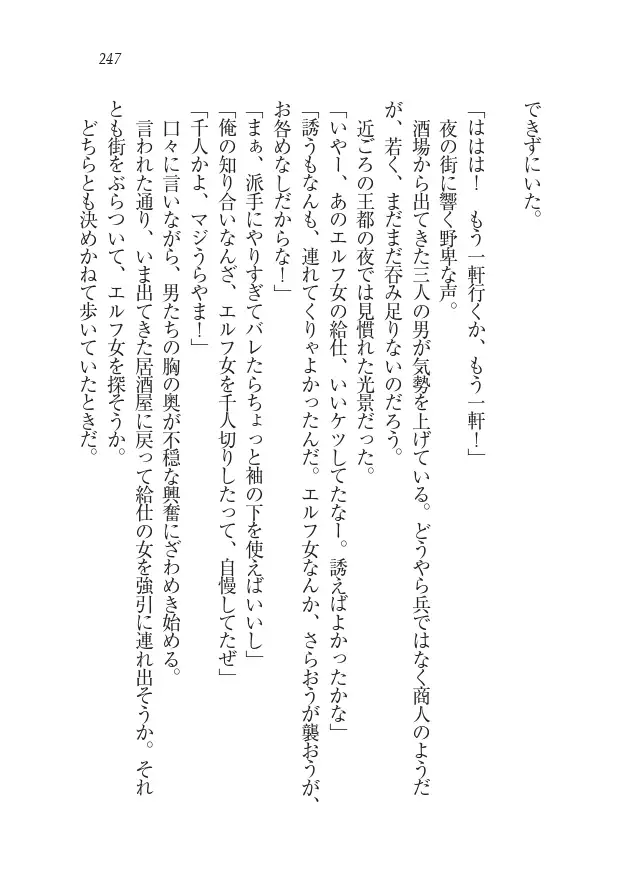 247
できずにいた。
「ははは！　もう一軒行くか、もう一軒！」
夜の街に響く野卑な声。
酒場から出てきた三人の男が気勢を上げている。どうやら兵ではなく商人のようだ
が、若く、まだまだ呑み足りないのだろう。
近ごろの王都の夜では見慣れた光景だった。
「いやー、あのエルフ女の給仕、いいケツしてたなー。誘えばよかったかな」
「誘うもなんも、連れてくりゃよかったんだ。エルフ女なんか、さらおうが襲おうが、
お咎めなしだからな！」
「まぁ、派手にやりすぎてバレたらちょっと袖の下を使えばいいし」
「俺の知り合いなんざ、エルフ女を千人切りしたって、自慢してたぜ」
「千人かよ、マジうらやま！」
口々に言いながら、男たちの胸の奥が不穏な興奮にざわめき始める。
言われた通り、いま出てきた居酒屋に戻って給仕の女を強引に連れ出そうか。それ
とも街をぶらついて、エルフ女を探そうか。
どちらとも決めかねて歩いていたときだ。